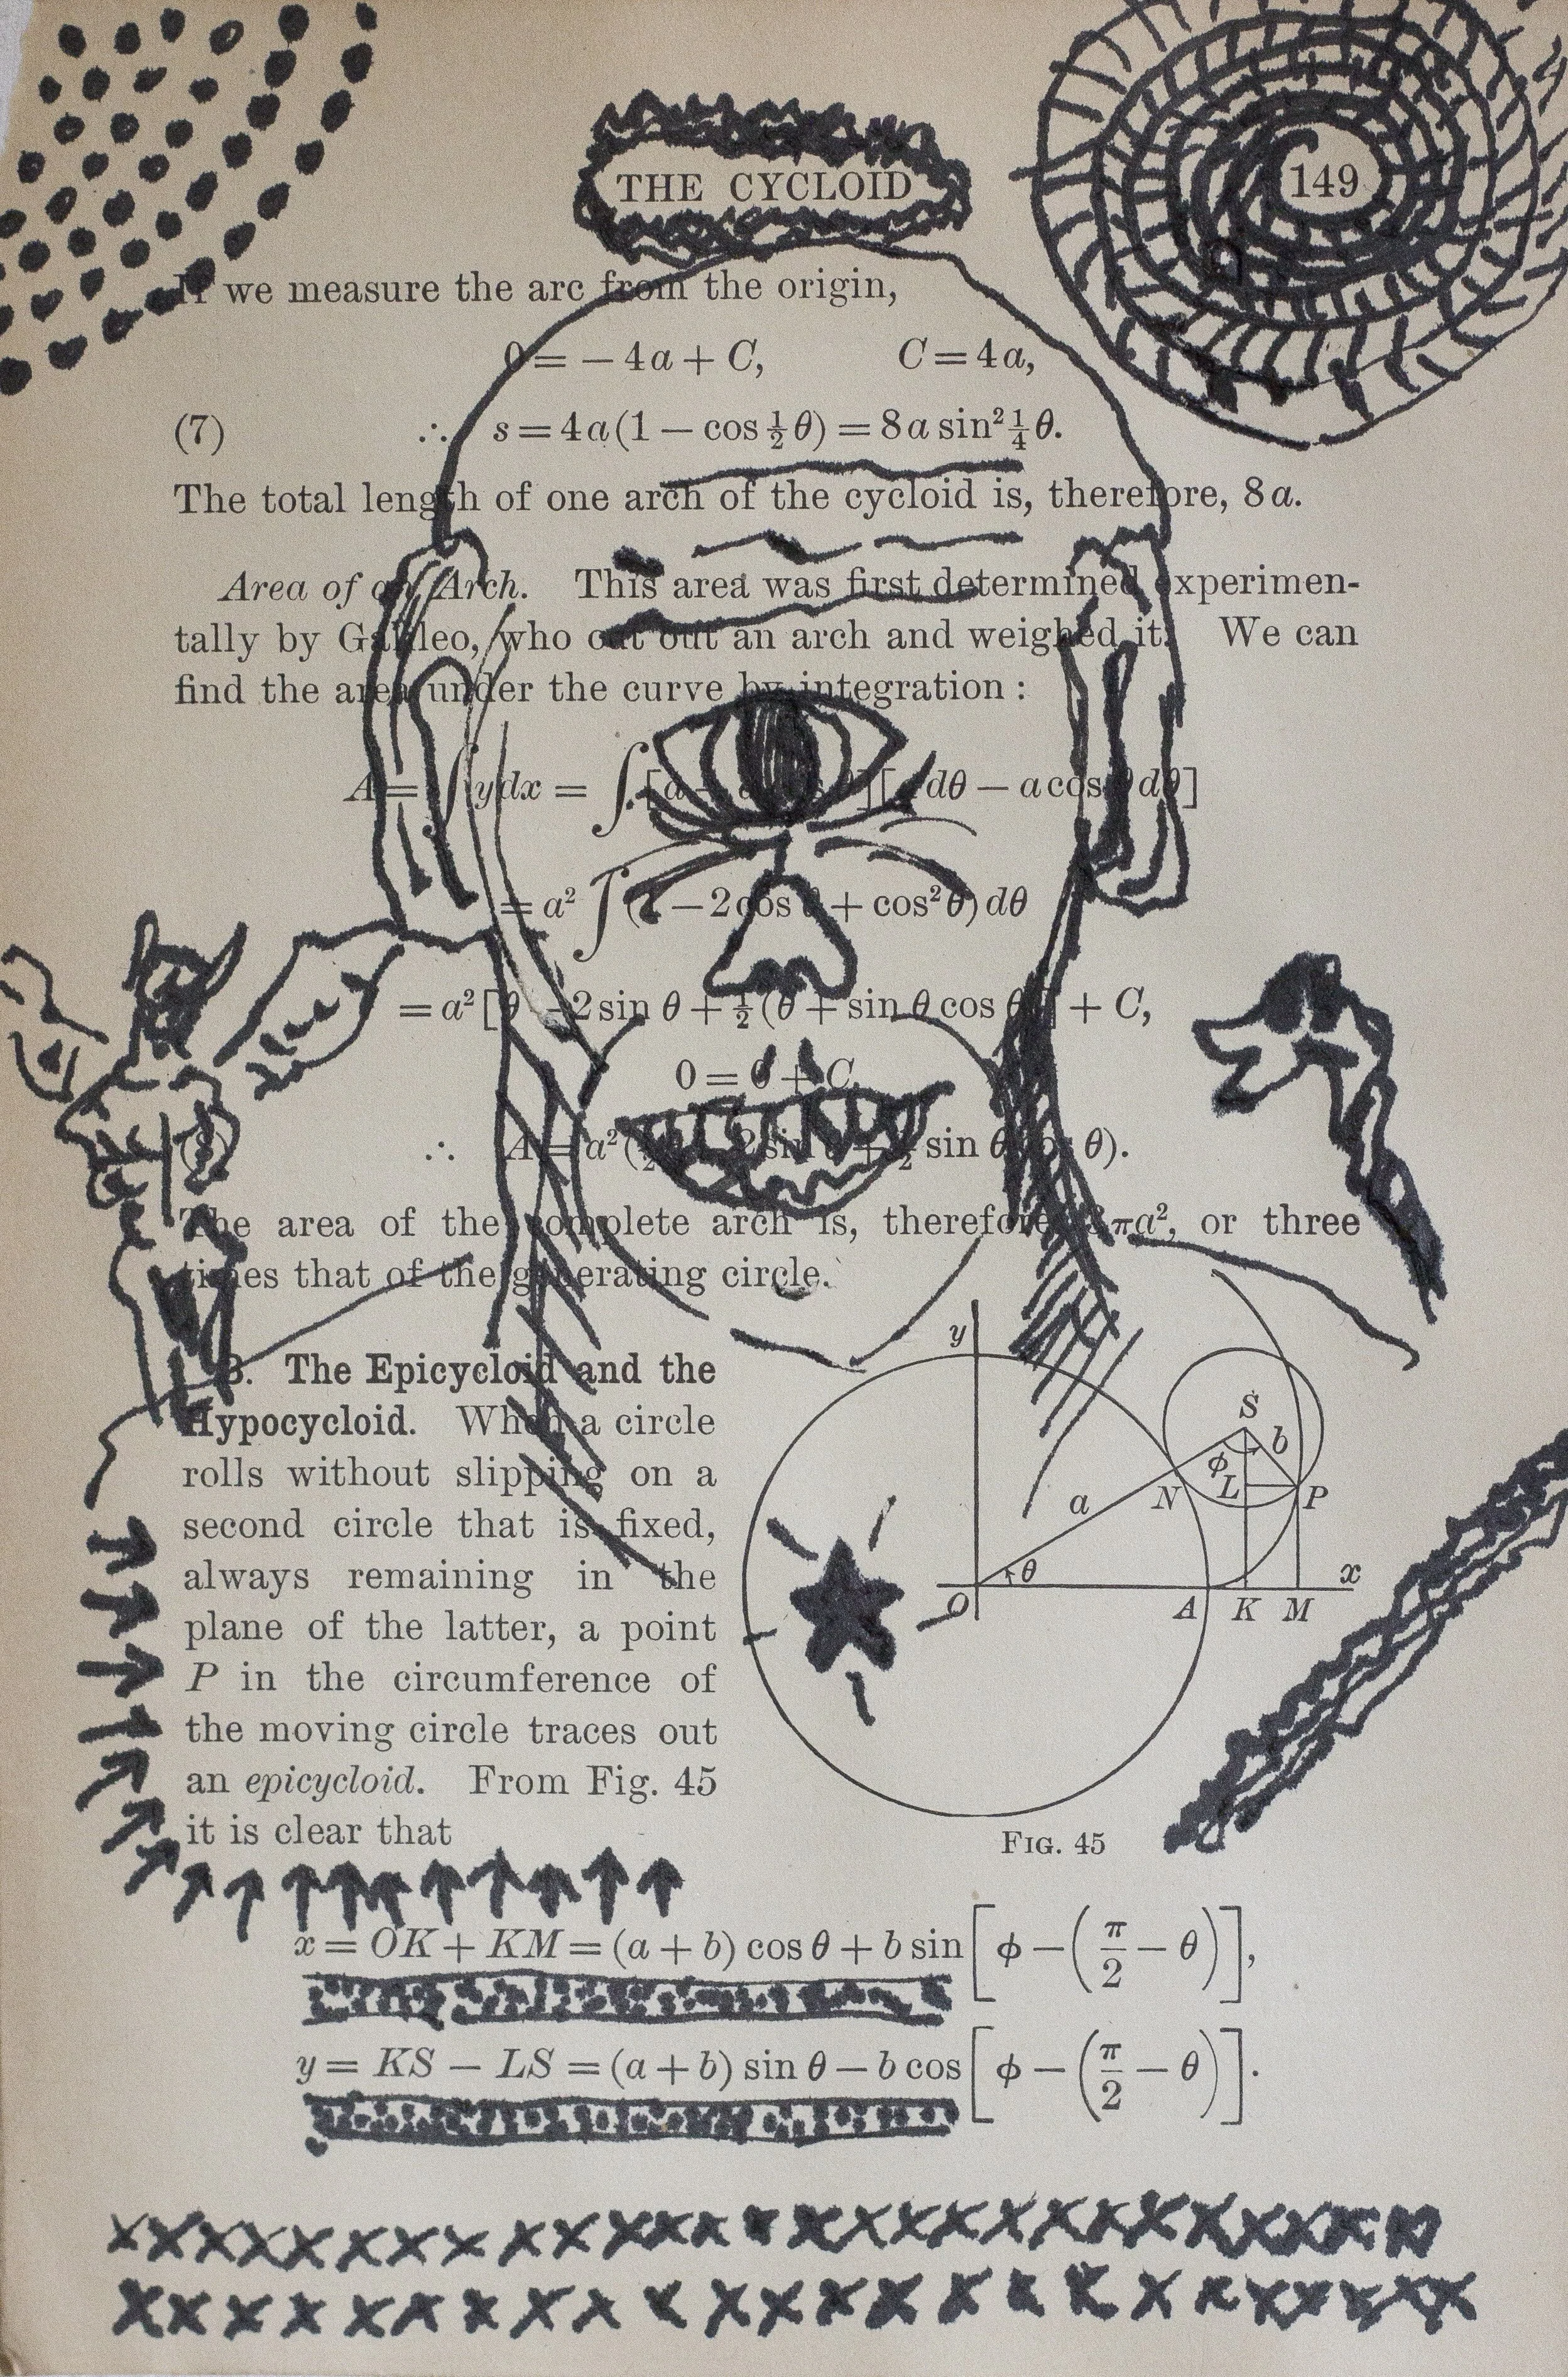 THE CYCLOID 149
If we measure the arc from the origin,
0 = − 4a + C, C = 4a,
(7) ∴ s = 4a(1 − cos ½θ) = 8a sin² ¼θ.
The total length of one arch of the cycloid is, therefore, 8a.
Area of an Arch. This area was first determined experimen-
tally by Galileo, who cut out an arch and weighed it. We can
find the area under the curve by integration :
A = ∫ydx = ∫[a − a cos θ][a dθ − a cos θ dθ]
= a² ∫(1 − 2 cos θ + cos² θ)dθ
= a²[θ − 2 sin θ + ½(θ + sin θ cos θ)] + C,
0 = 0 + C,
∴ A = a²( − 2 sin θ + ½ sin θ cos θ).
The area of the complete arch is, therefore, 3πa², or three
times that of the generating circle.
8. The Epicycloid and the
Hypocycloid. When a circle
rolls without slipping on a
second circle that is fixed,
always remaining in the
plane of the latter, a point
P in the circumference of
the moving circle traces out
an epicycloid. From Fig. 45
it is clear that
y
S
ϕ b
a N L P
θ x
O A K M
FIG. 45
x = OK + KM = (a + b) cos θ + b sin[ϕ − (π/2 − θ)],
y = KS − LS = (a + b) sin θ − b cos[ϕ − (π/2 − θ)].